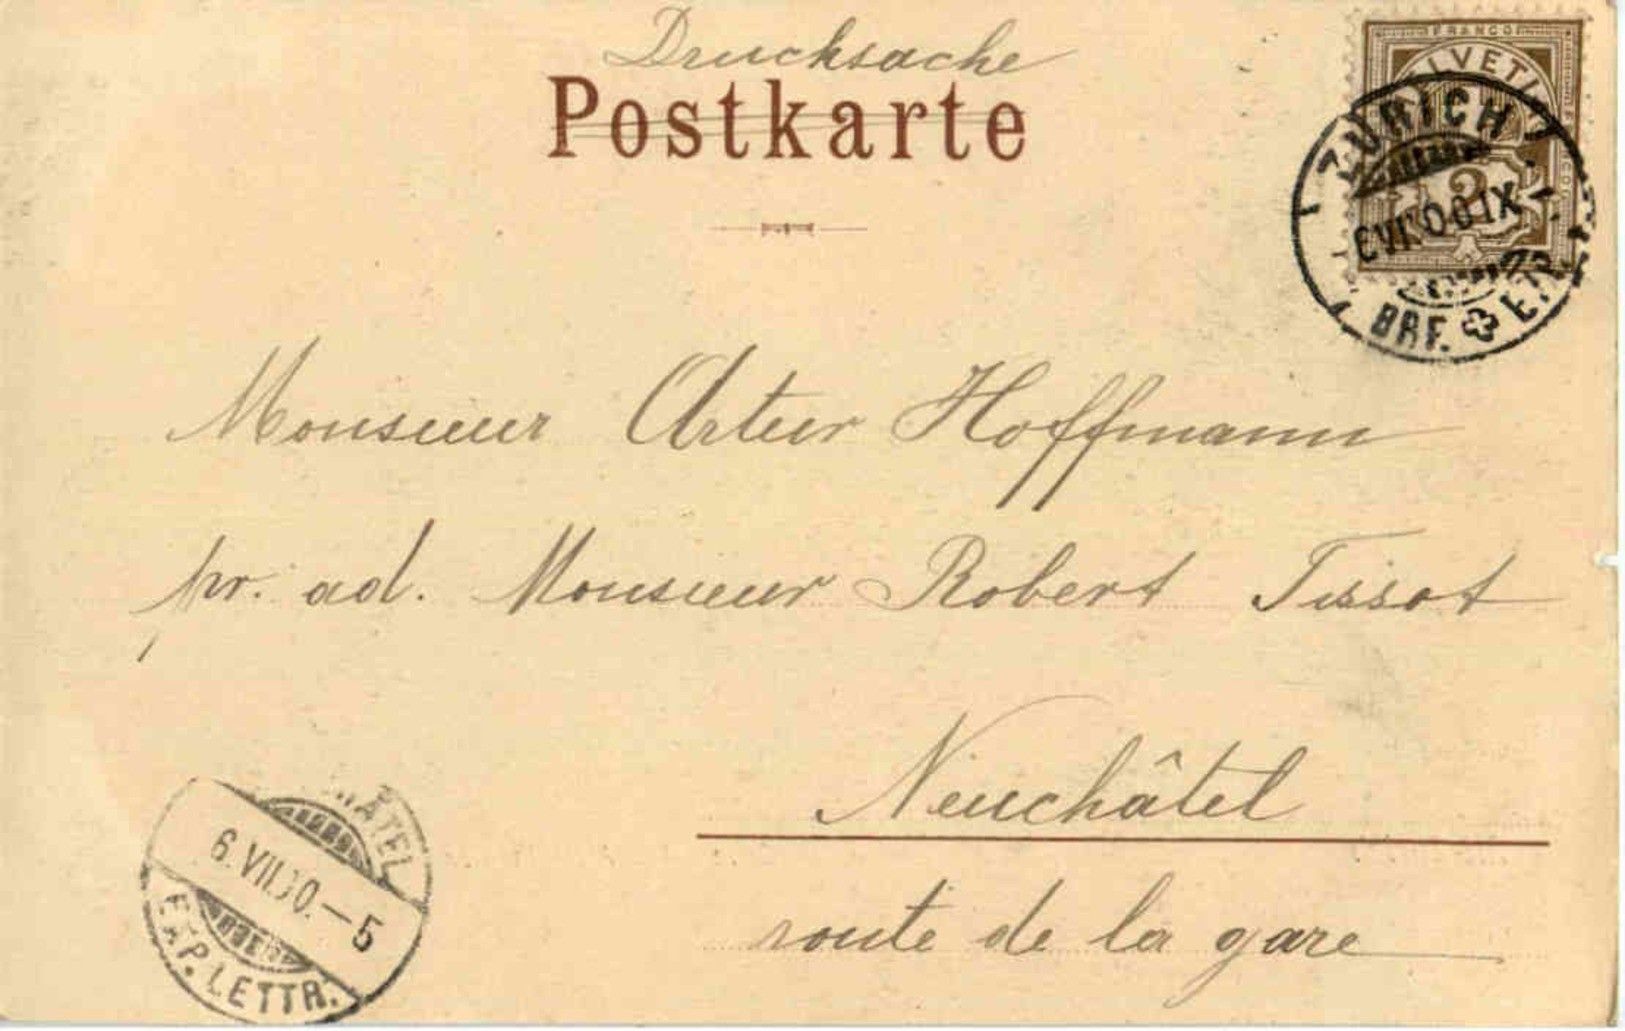 Drucksache
Postkarte
FRANCO
HELVETIA
ZÜRICH
6.VII.00.IX
BRF.
Monsieur Artur Hoffmann
pr. ad. Monsieur Robert Tissot
Neuchâtel
route de la gare
6.VII.00.—5
EXP. LETTR.